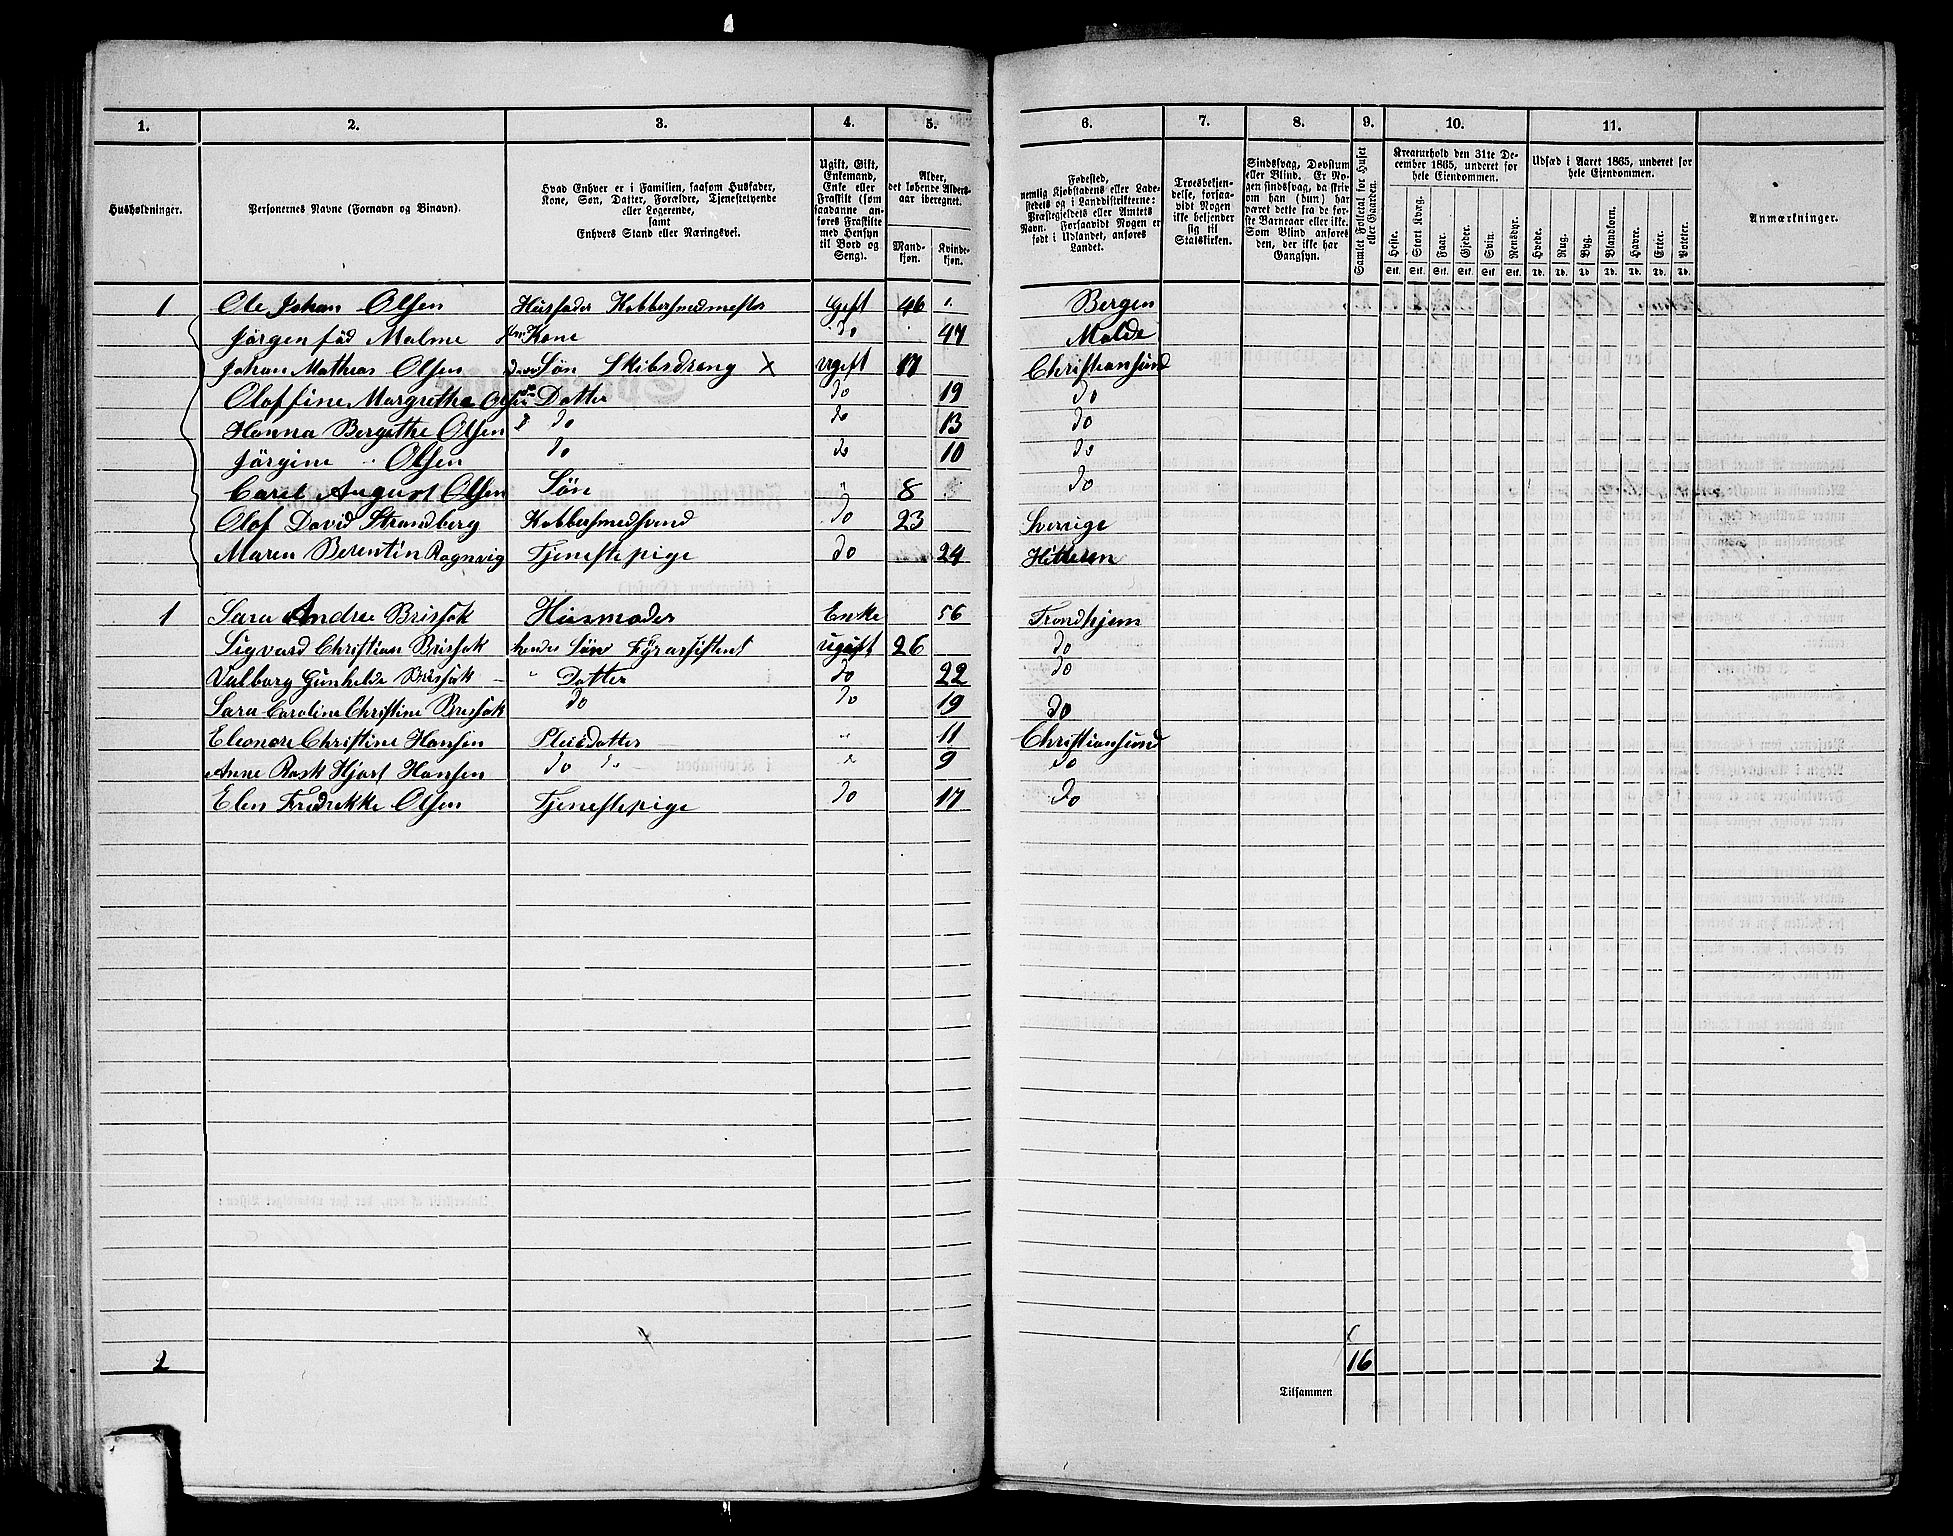 1. 2. 3. 4. 5. 6. 7. 8. 9. 10. 11.
Husholdninger.
Personernes Navne (Fornavn og Binavn).
Hvad Enhver er i Familien, saasom Husfader,
Kone, Søn, Datter, Forældre, Tjenestetyende
eller Logerende,
samt
Enhvers Stand eller Næringsvei.
Ugift, Gift,
Enkemand,
Enke eller
Fraskilt (som
saadanne an-
føres Fraskilte
med Hensyn
til Bord og
Seng).
Alder,
det løbende Alders-
aar iberegnet.
Mand-
kjøn.
Kvinde-
kjøn.
Fødested,
nemlig Kjøbstadens eller Lade-
stedets og i Landdistrikterne:
Præstegjeldets eller Amtets
Navn. Forsaavidt Nogen er
født i Udlandet, anføres
Landet.
Troesbekjen-
delse, forsaa-
vidt Nogen
ikke bekjender
sig til
Statskirken.
Sindssvag, Døvstum
eller Blind. Er No-
gen sindssvag, da skriv
om han (hun) har
været dette fra de før-
ste Barneaar eller ikke.
Som Blind anføres
den, der ikke har
Gangsyn.
Samlet Folketal for Huset
eller Gaarden.
Kreaturhold den 31te De-
cember 1865, underet for
hele Eiendommen.
Heste. Stort Kvæg. Faar. Gjeder. Svin. Rensdyr.
Stk. Stk. Stk. Stk. Stk. Stk.
Udsæd i Aaret 1865, underet for
hele Eiendommen.
Hvede. Rug. Byg. Blandkorn. Havre. Erter. Poteter.
Td. Td. Td. Td. Td. Td. Td.
Anmærkninger.
1 Ole Johan Olsen Husfader Kobbersmedmester Gift 46 Bergen
Jørgen fød Malme Kone do 47 Molde
Johan Mathias Olsen Søn Skibsdreng X Ugift 17 Christiansund
Oloffine Margrethe Olsen Datter do 19 do
Hanna Bergethe Olsen do do 13 do
Jørgine Olsen do do 10 do
Carel August Olsen Søn " 8 do
Olof David Strandberg Kobbersmedsvend do 23 Sverige
Maren Berentin Rognvig Tjenestepige do 24 Hitteren
1 Sara Andrea Brissok Husmoder Enke 56 Trondhjem
Sigvard Christian Brissok hendes Søn Fyrassistent ugift 26 do
Valborg Gunhilde Brissok " Datter do 22 do
Sara Caroline Christine Brissok do do 19 do
Eleonore Christine Hansen Pleiedatter " 11 Christiansund
Anne Rosk Hjort Hansen do do " 9 do
Elen Fredrekke Olsen Tjenestepige do 17 do
2
16
Tilsammen